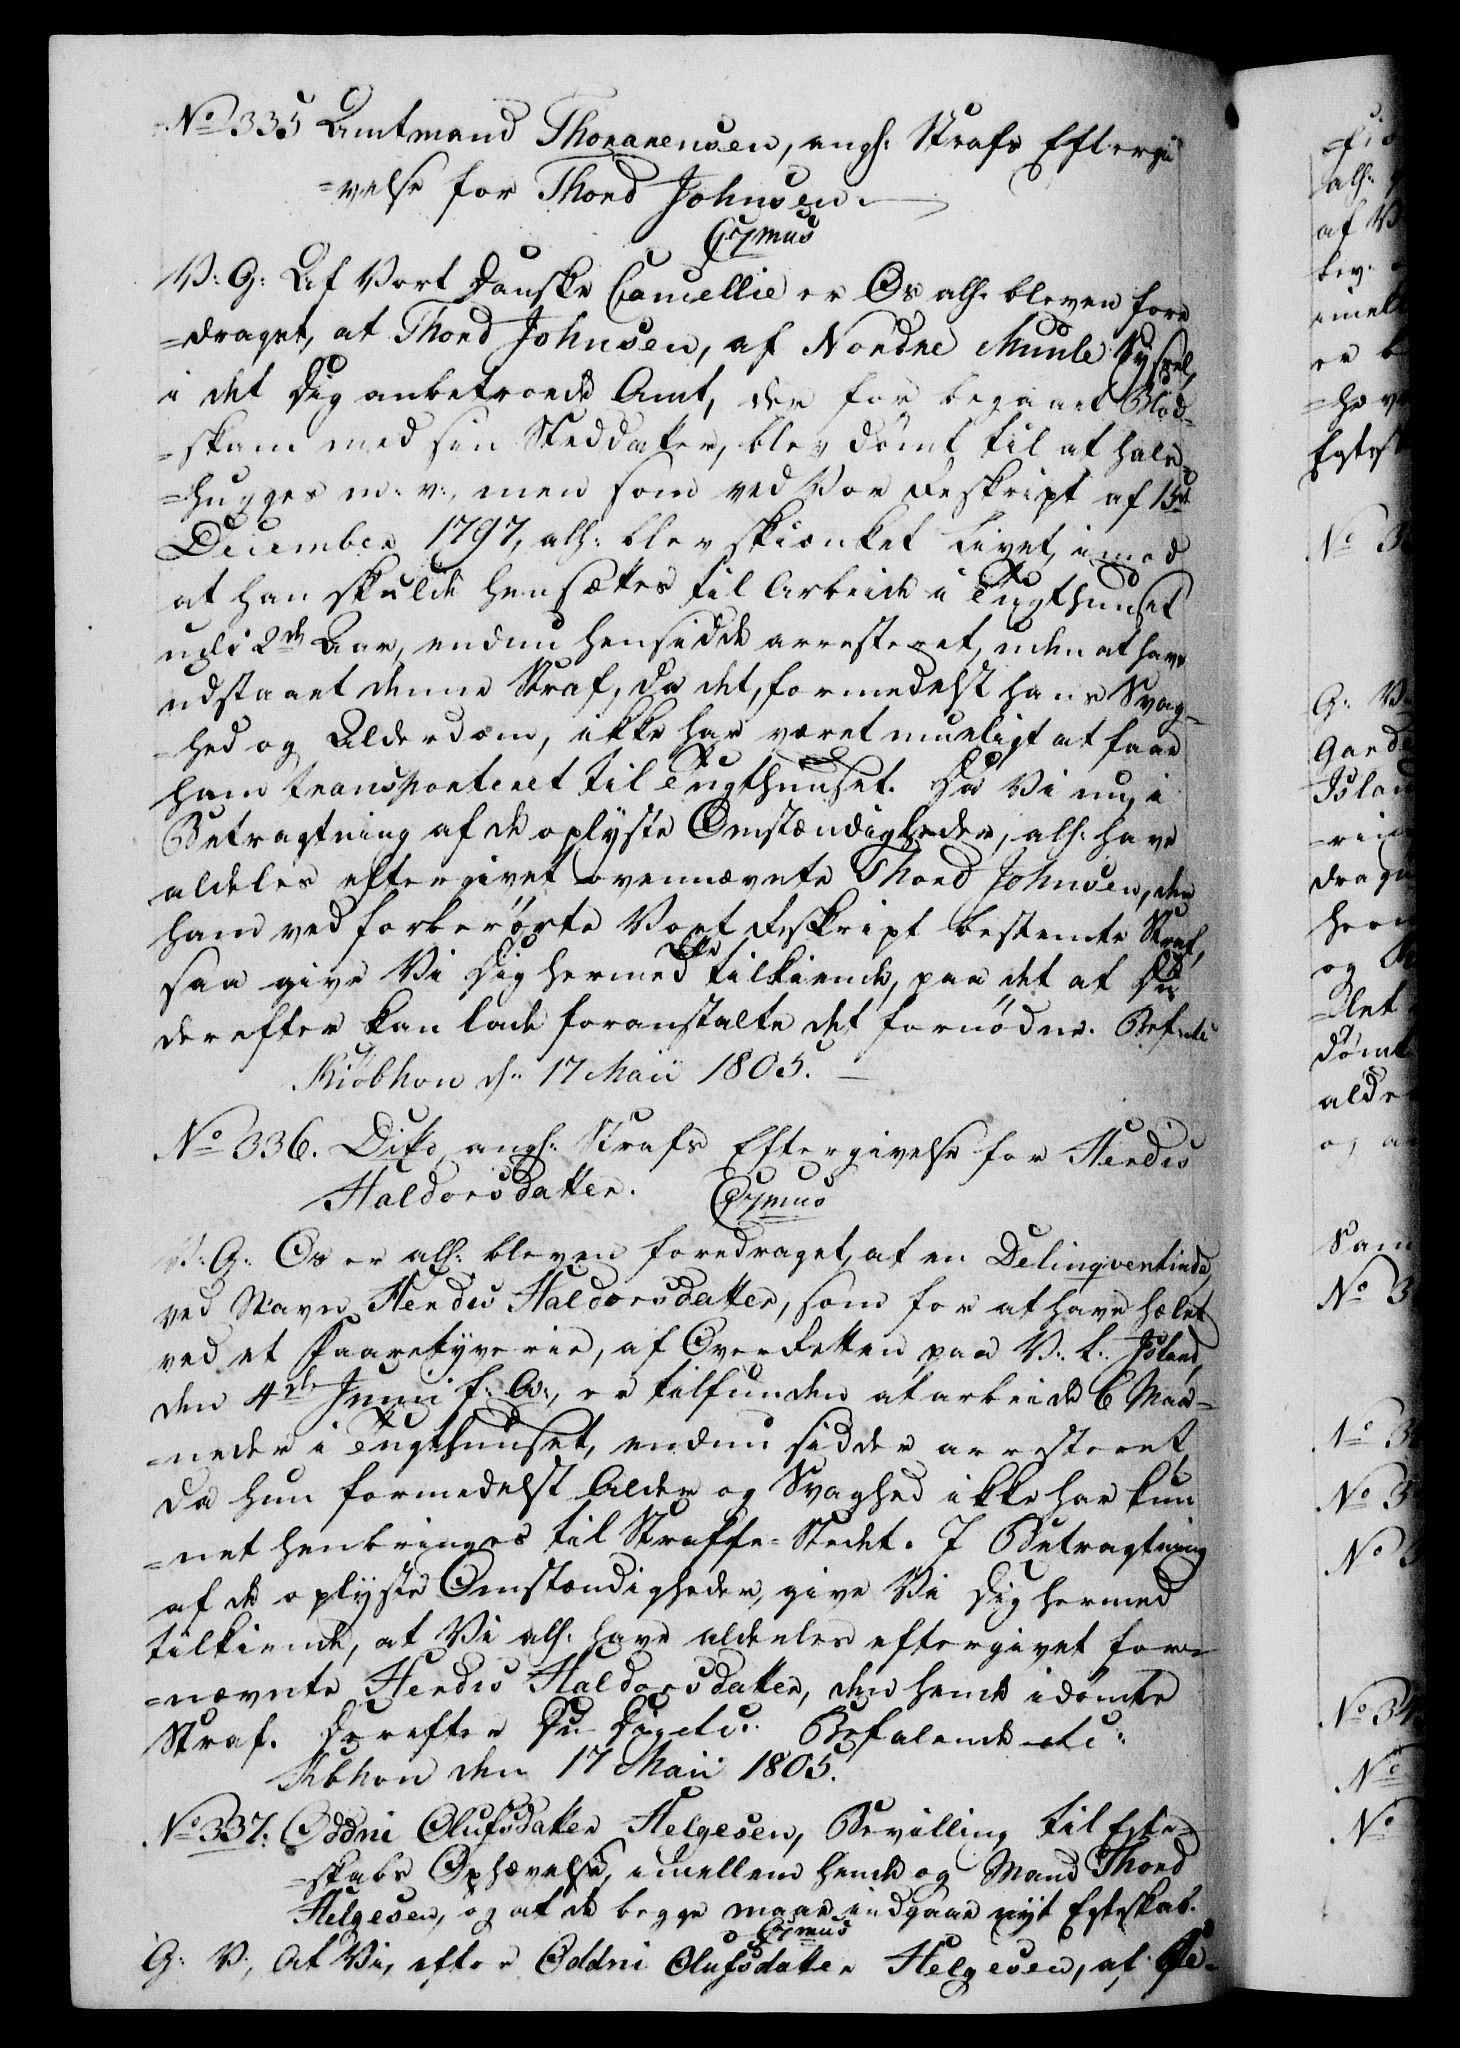 No 335 Amtmand Thorarensen, angl: Strafs Eftergi
=velse for Thord Johnsen.
Cr7mus
V: G: Af Vort Danske Cancellie er Os all: bleven fore
=draget, at Thord Johnsen, af Nordre Mule Syssel,
i det Dig anbetroede Amt, der for begaaet Blod=
=skam med sin Steddatter, blev dömt til at hals=
=hugges m: v:, men som ved Vor Reskript af 15de
December 1797, all: blev skienket Livet, imod
at han skulde hensættes til Arbeide i Tugthuuset
udi 2de Aar, endnu hensidde arresteret, uden at have
udstaaet denne Straf, da det, formedelst hans Svag=
=hed og Alderdom, ikke har været mueligt at faae
ham transporteret til Tugthuuset. Da Vi nu, i
Betragtning af de oplyste Omstændigheder, all: have
aldeles eftergivet ovennævnte Thord Johnsen, den
ham ved forberörte Vort Reskript bestemte Straf,
saa give Vi Dig hermed tilkiende, paa det at Du
derefter kan lade foranstalte det fornödne. Bef: etc
Kiöbhvn d: 17 Maii 1805.
No 336. Dito, angl: Strafs Eftergivelse for Herdis
Haldorsdatter. Cr7mus
V: G: Os er all: bleven foredraget, at en Delinqventinde,
ved Navn Herdis Haldorsdatter, som for at have hælet
ved et Faaretyverie, af OverRetten paa V: L: Island,
den 4de Junii f: A:, er tilfunden at arbeide 6 Maa=
=neder i Tugthuuset, endnu sidder arresteret,
da hun formedelst Alder og Svaghed ikke har kun
=net henbringes til Straffe=Stedet. I Betragtning
af de oplyste Omstændigheder, give Vi Dig hermed
tilkiende, at Vi all: have aldeeles eftergivet for=
=nævnte Herdis Haldorsdatter, den hende idömte
Straf. Derefter Du Dig etc: Befalende etc:
Kbhvn den 17 Maii 1805.
No 337: Oddni Olufsdatter Helgesen, Bevilling til Egte=
=skabs Ophævelse, imellem hende og Mand Thord
Helgesen, og at de begge maae indgaae nyt Egteskab.
Cr7mus
G: V:, At Vi, efter Oddni Olufsdatter Helgesen, af